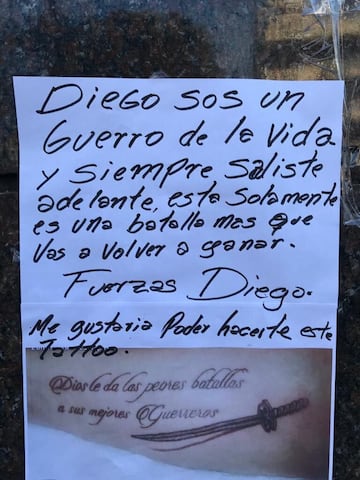 DIEGO SOS UN
Guerro de la Vida
y Siempre Saliste
adelante, esta Solamente
es una batalla mas que
Vas a Volver a ganar.
Fuerzas Diego.
Me gustaria Poder hacerte este
Tattoo.
Dios le da las peores batallas
a sus mejores Guerreros